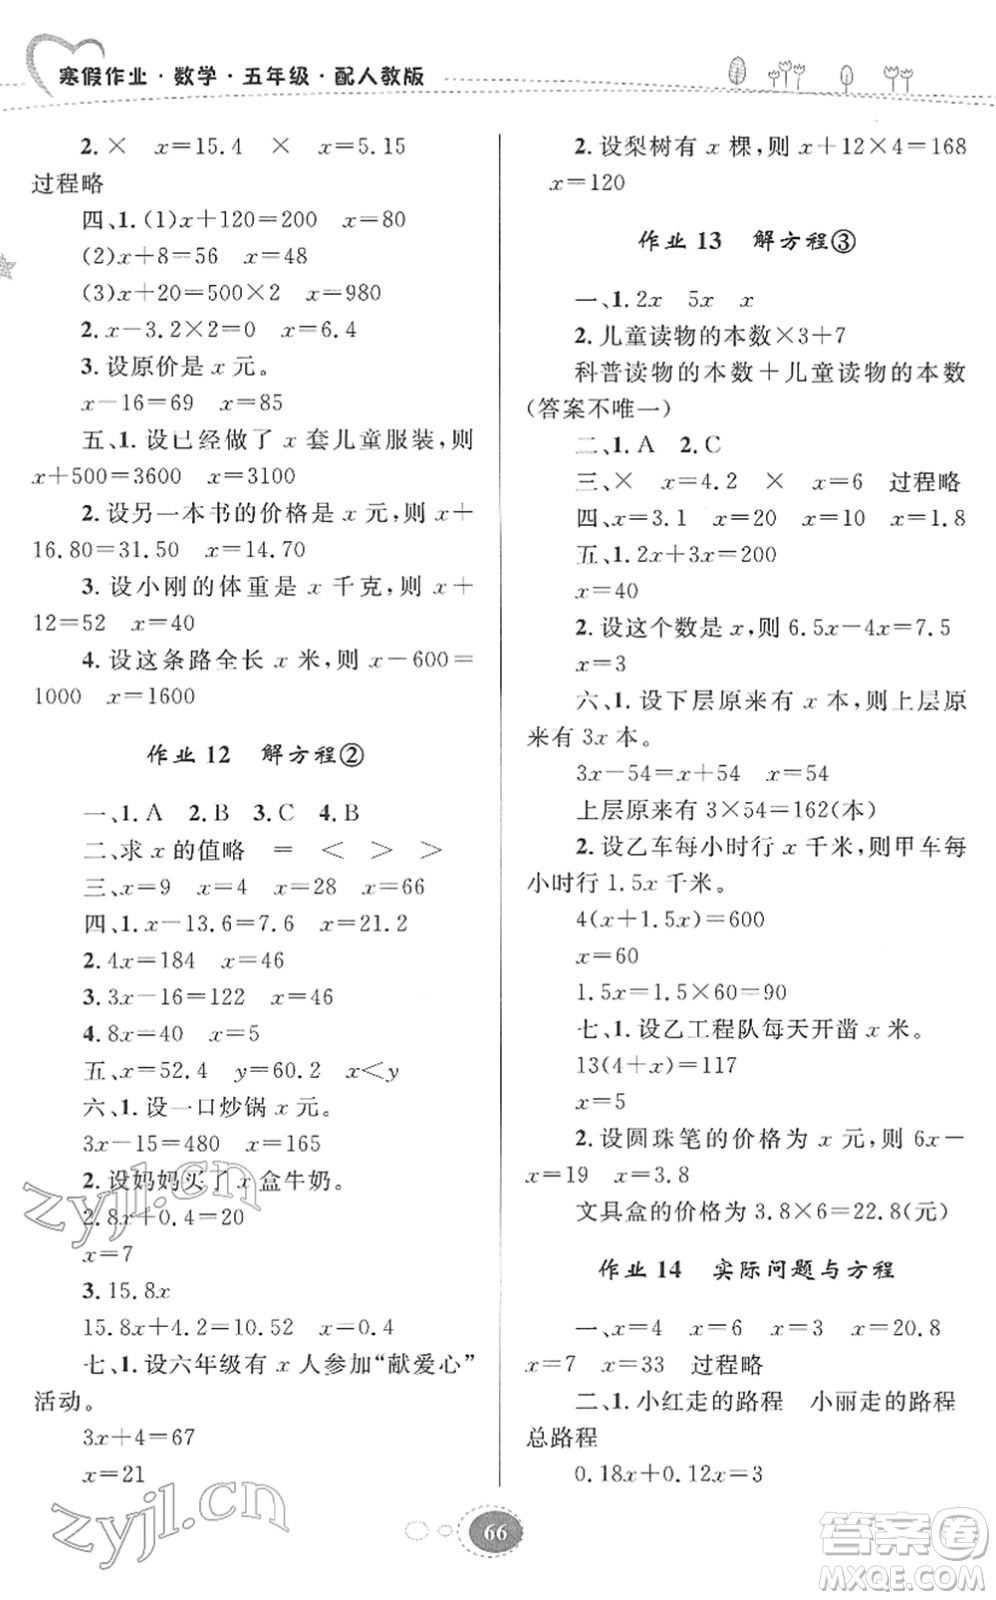 寒假作业·数学·五年级·配人教版
2.× x=15.4 × x=5.15
过程略
四、1.(1)x+120=200 x=80
(2)x+8=56 x=48
(3)x+20=500×2 x=980
2.x-3.2×2=0 x=6.4
3.设原价是 x 元。
x-16=69 x=85
五、1.设已经做了 x 套儿童服装,则
x+500=3600 x=3100
2.设另一本书的价格是 x 元,则 x+
16.80=31.50 x=14.70
3.设小刚的体重是 x 千克,则 x+
12=52 x=40
4.设这条路全长 x 米,则 x-600=
1000 x=1600
作业 12 解方程②
一、1.A 2.B 3.C 4.B
二、求 x 的值略 = < > >
三、x=9 x=4 x=28 x=66
四、1.x-13.6=7.6 x=21.2
2.4x=184 x=46
3.3x-16=122 x=46
4.8x=40 x=5
五、x=52.4 y=60.2 x<y
六、1.设一口炒锅 x 元。
3x-15=480 x=165
2.设妈妈买了 x 盒牛奶。
2.8x+0.4=20
x=7
3.15.8x
15.8x+4.2=10.52 x=0.4
七、1.设六年级有 x 人参加“献爱心”
活动。
3x+4=67
x=21
2.设梨树有 x 棵,则 x+12×4=168
x=120
作业 13 解方程③
一、1.2x 5x x
2.儿童读物的本数×3+7
科普读物的本数+儿童读物的本数
(答案不唯一)
二、1.A 2.C
三、× x=4.2 × x=6 过程略
四、x=3.1 x=20 x=10 x=1.8
五、1.2x+3x=200
x=40
2.设这个数是 x,则 6.5x-4x=7.5
x=3
六、1.设下层原来有 x 本,则上层原
来有 3x 本。
3x-54=x+54 x=54
上层原来有 3×54=162(本)
2.设乙车每小时行 x 千米,则甲车每
小时行 1.5x 千米。
4(x+1.5x)=600
x=60
1.5x=1.5×60=90
七、1.设乙工程队每天开凿 x 米。
13(4+x)=117
x=5
2.设圆珠笔的价格为 x 元,则 6x-
x=19 x=3.8
文具盒的价格为 3.8×6=22.8(元)
作业 14 实际问题与方程
一、x=4 x=6 x=3 x=20.8
x=7 x=33 过程略
二、1.小红走的路程 小丽走的路程
总路程
0.18x+0.12x=3
66
zyjl.cn
zyjl.cn
答案圈
MXQE.COM